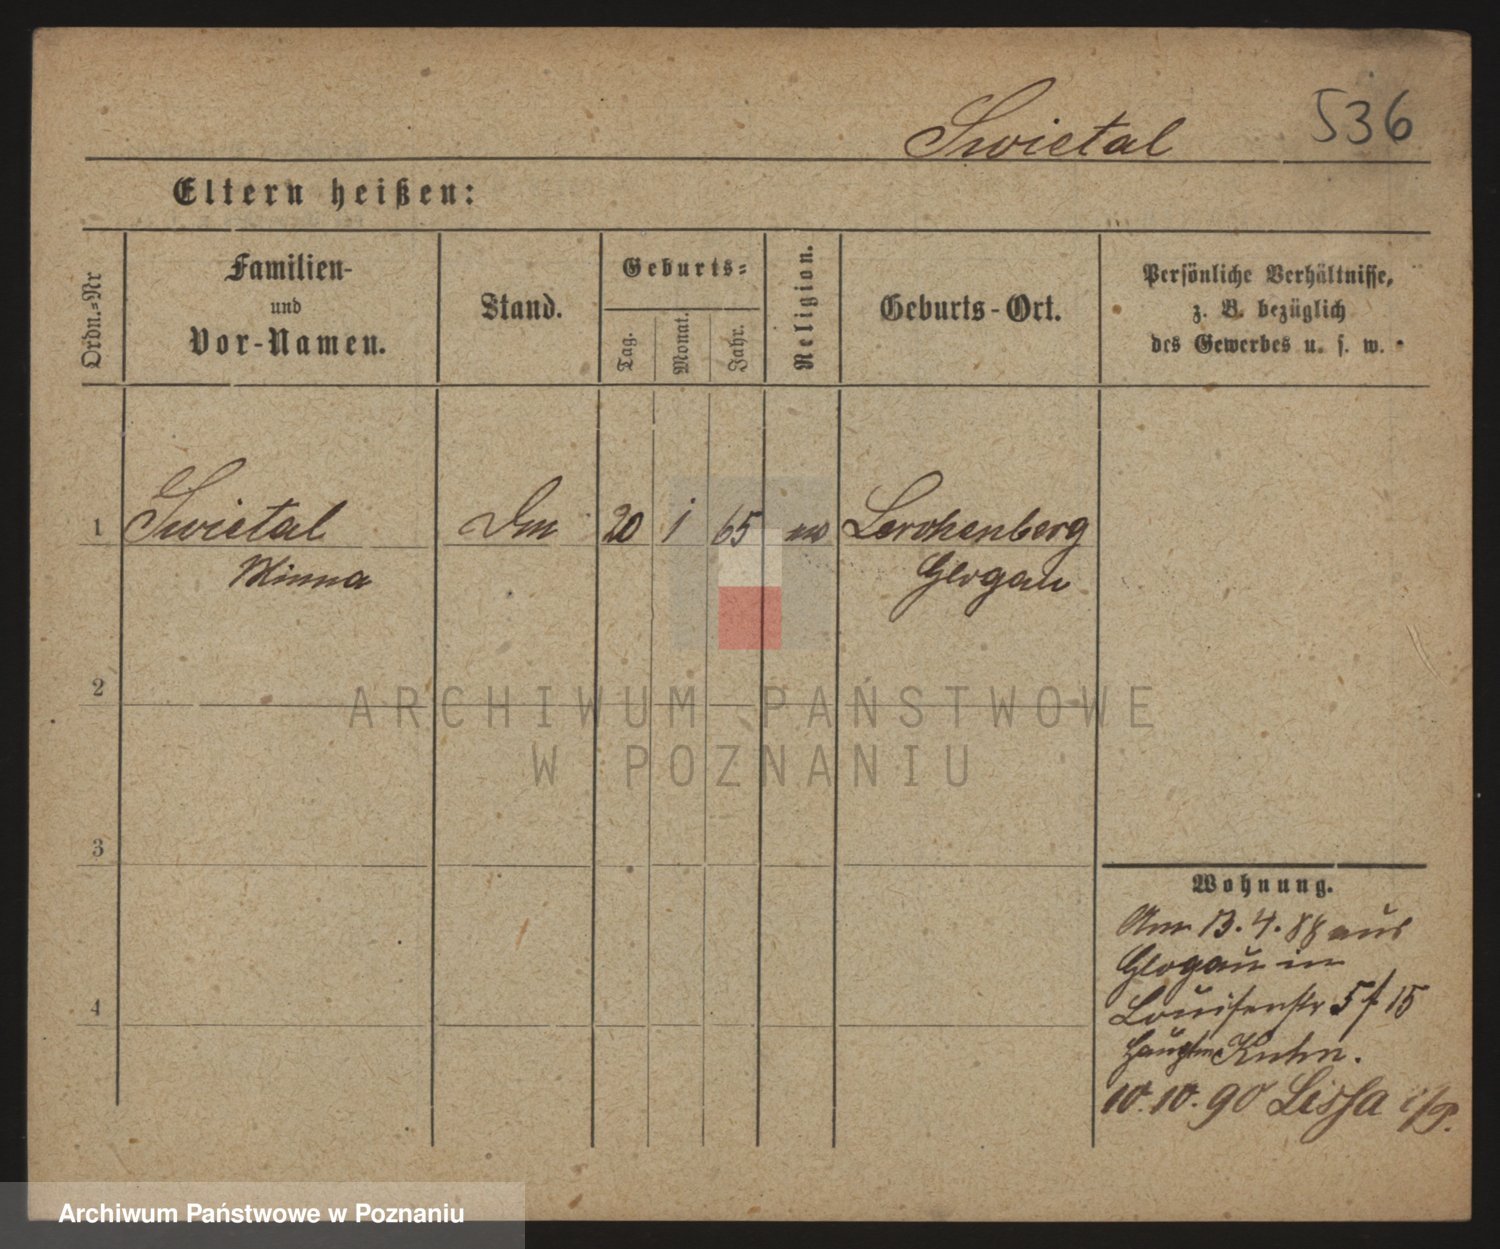 Swietal 536
Eltern heißen:
Ordn.-Nr
Familien-
und
Vor-Namen.
Stand.
Geburts-
Tag.
Monat.
Jahr.
Religion.
Geburts-Ort.
Persönliche Verhältnisse,
z. B. bezüglich
des Gewerbes u. s. w.
1 Swietal 20 1 65 Lerchenberg
Minna Glogau
2
ARCHIWUM PAŃSTWOWE
W POZNANIU
3
Wohnung.
13.4.88 aus
Glogau in
4
Louisenstr 5 f 15
Hauptm Kuhn.
10.10.90 Lissa i/P.
Archiwum Państwowe w Poznaniu